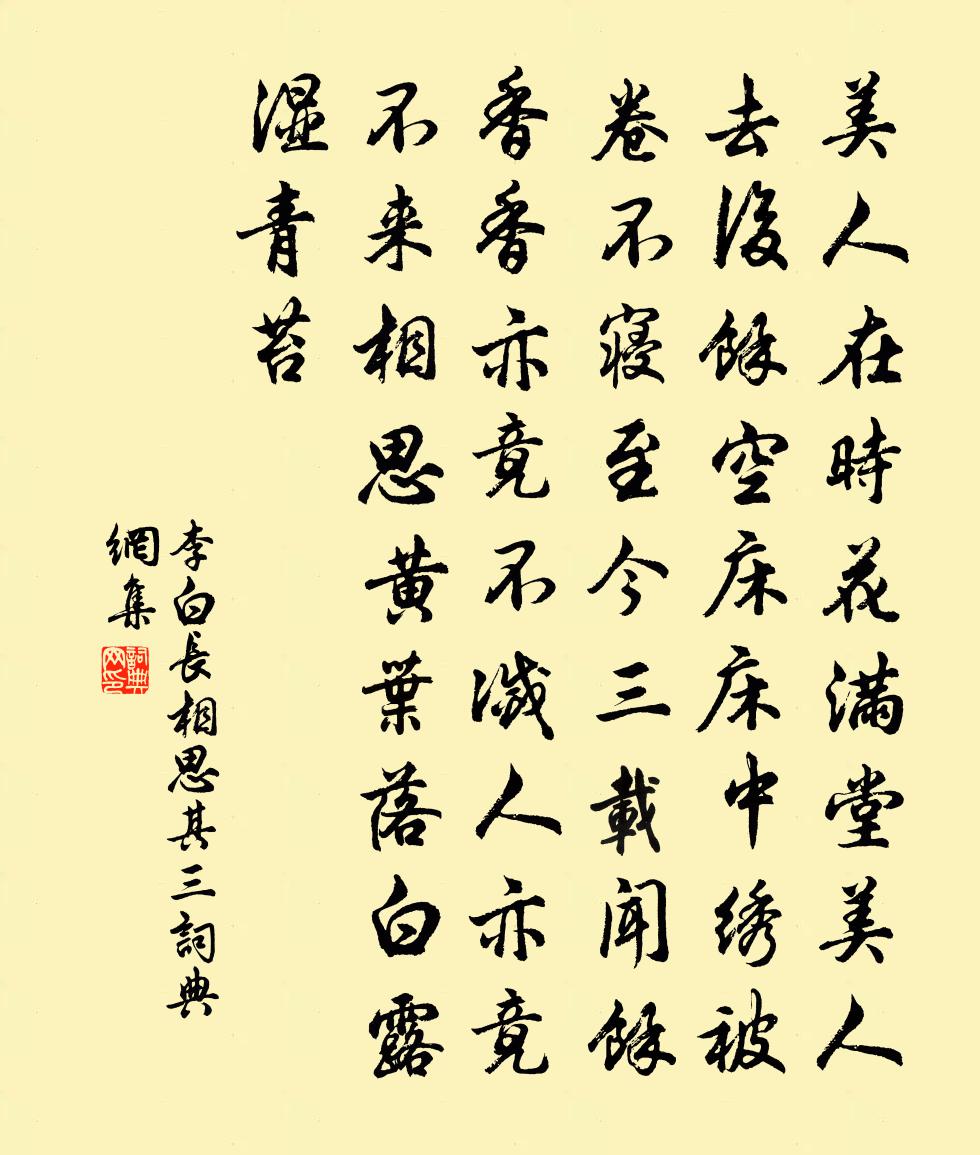 美人在時花滿堂美人
去後餘空床床中绣被
卷不寢至今三載聞餘
香香亦竟不滅人亦竟
不来相思黄葉落白露
濕青苔
李白長相思其三詞典
網集
詞典
网印